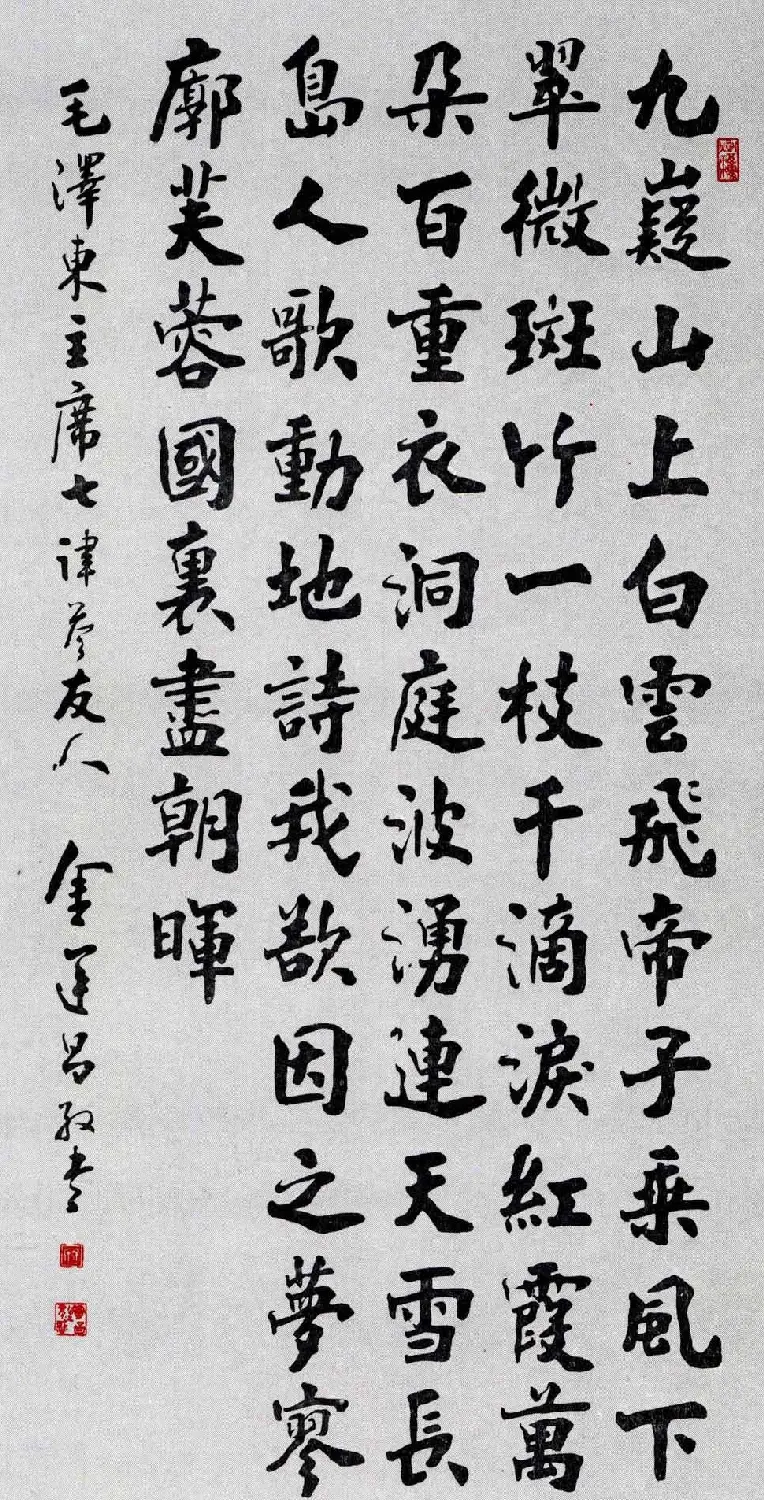 九嶷山上白雲飛帝子乗風下
翠微斑竹一枝千滴淚紅霞萬
朵百重衣洞庭波湧連天雪長
島人歌動地詩我欲因之夢寥
廓芙蓉國裏盡朝暉
毛澤東主席七律荅友人 金運昌敬書